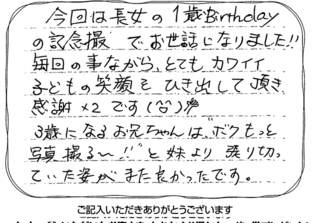 今回は長女の1歳Birthday
の記念撮 でお世話になりました!!
毎回の事ながら、とてもカワイイ
子どもの笑顔をひき出して頂き
感謝×2です(^^)
3歳になるお兄ちゃんは、"ボクもっと
写真撮る〜!!"と妹より張り切っ
ていた姿がまた良かったです。
ご記入いただきありがとうございます